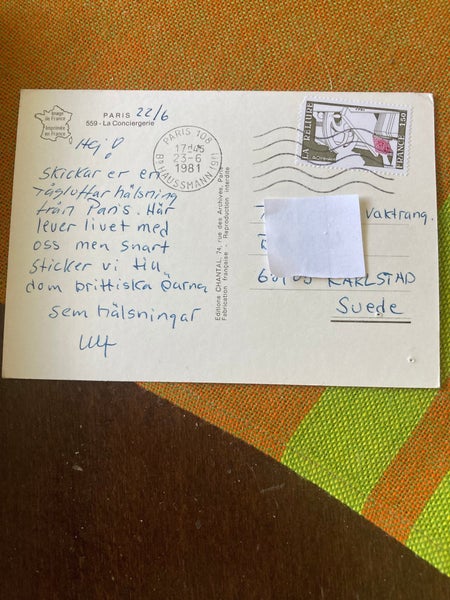 Image
de France
Imprimée
en France
PARIS 22/6
559 - La Conciergerie
Hej!
Skickar er en
tågluffarhälsning
från Paris. Här
lever livet med
oss men snart
sticker vi till
dom brittiska öarna
Sem hälsningar
Ulf
PARIS 108
17H45
23-6
1981
Bd HAUSSMANN
Editions CHANTAL, 74, rue des Archives, Paris
Fabrication Française - Reproduction interdite
LA RELIURE
FRANCE 1,50
Vaktrang.
KARLSTAD
Suede